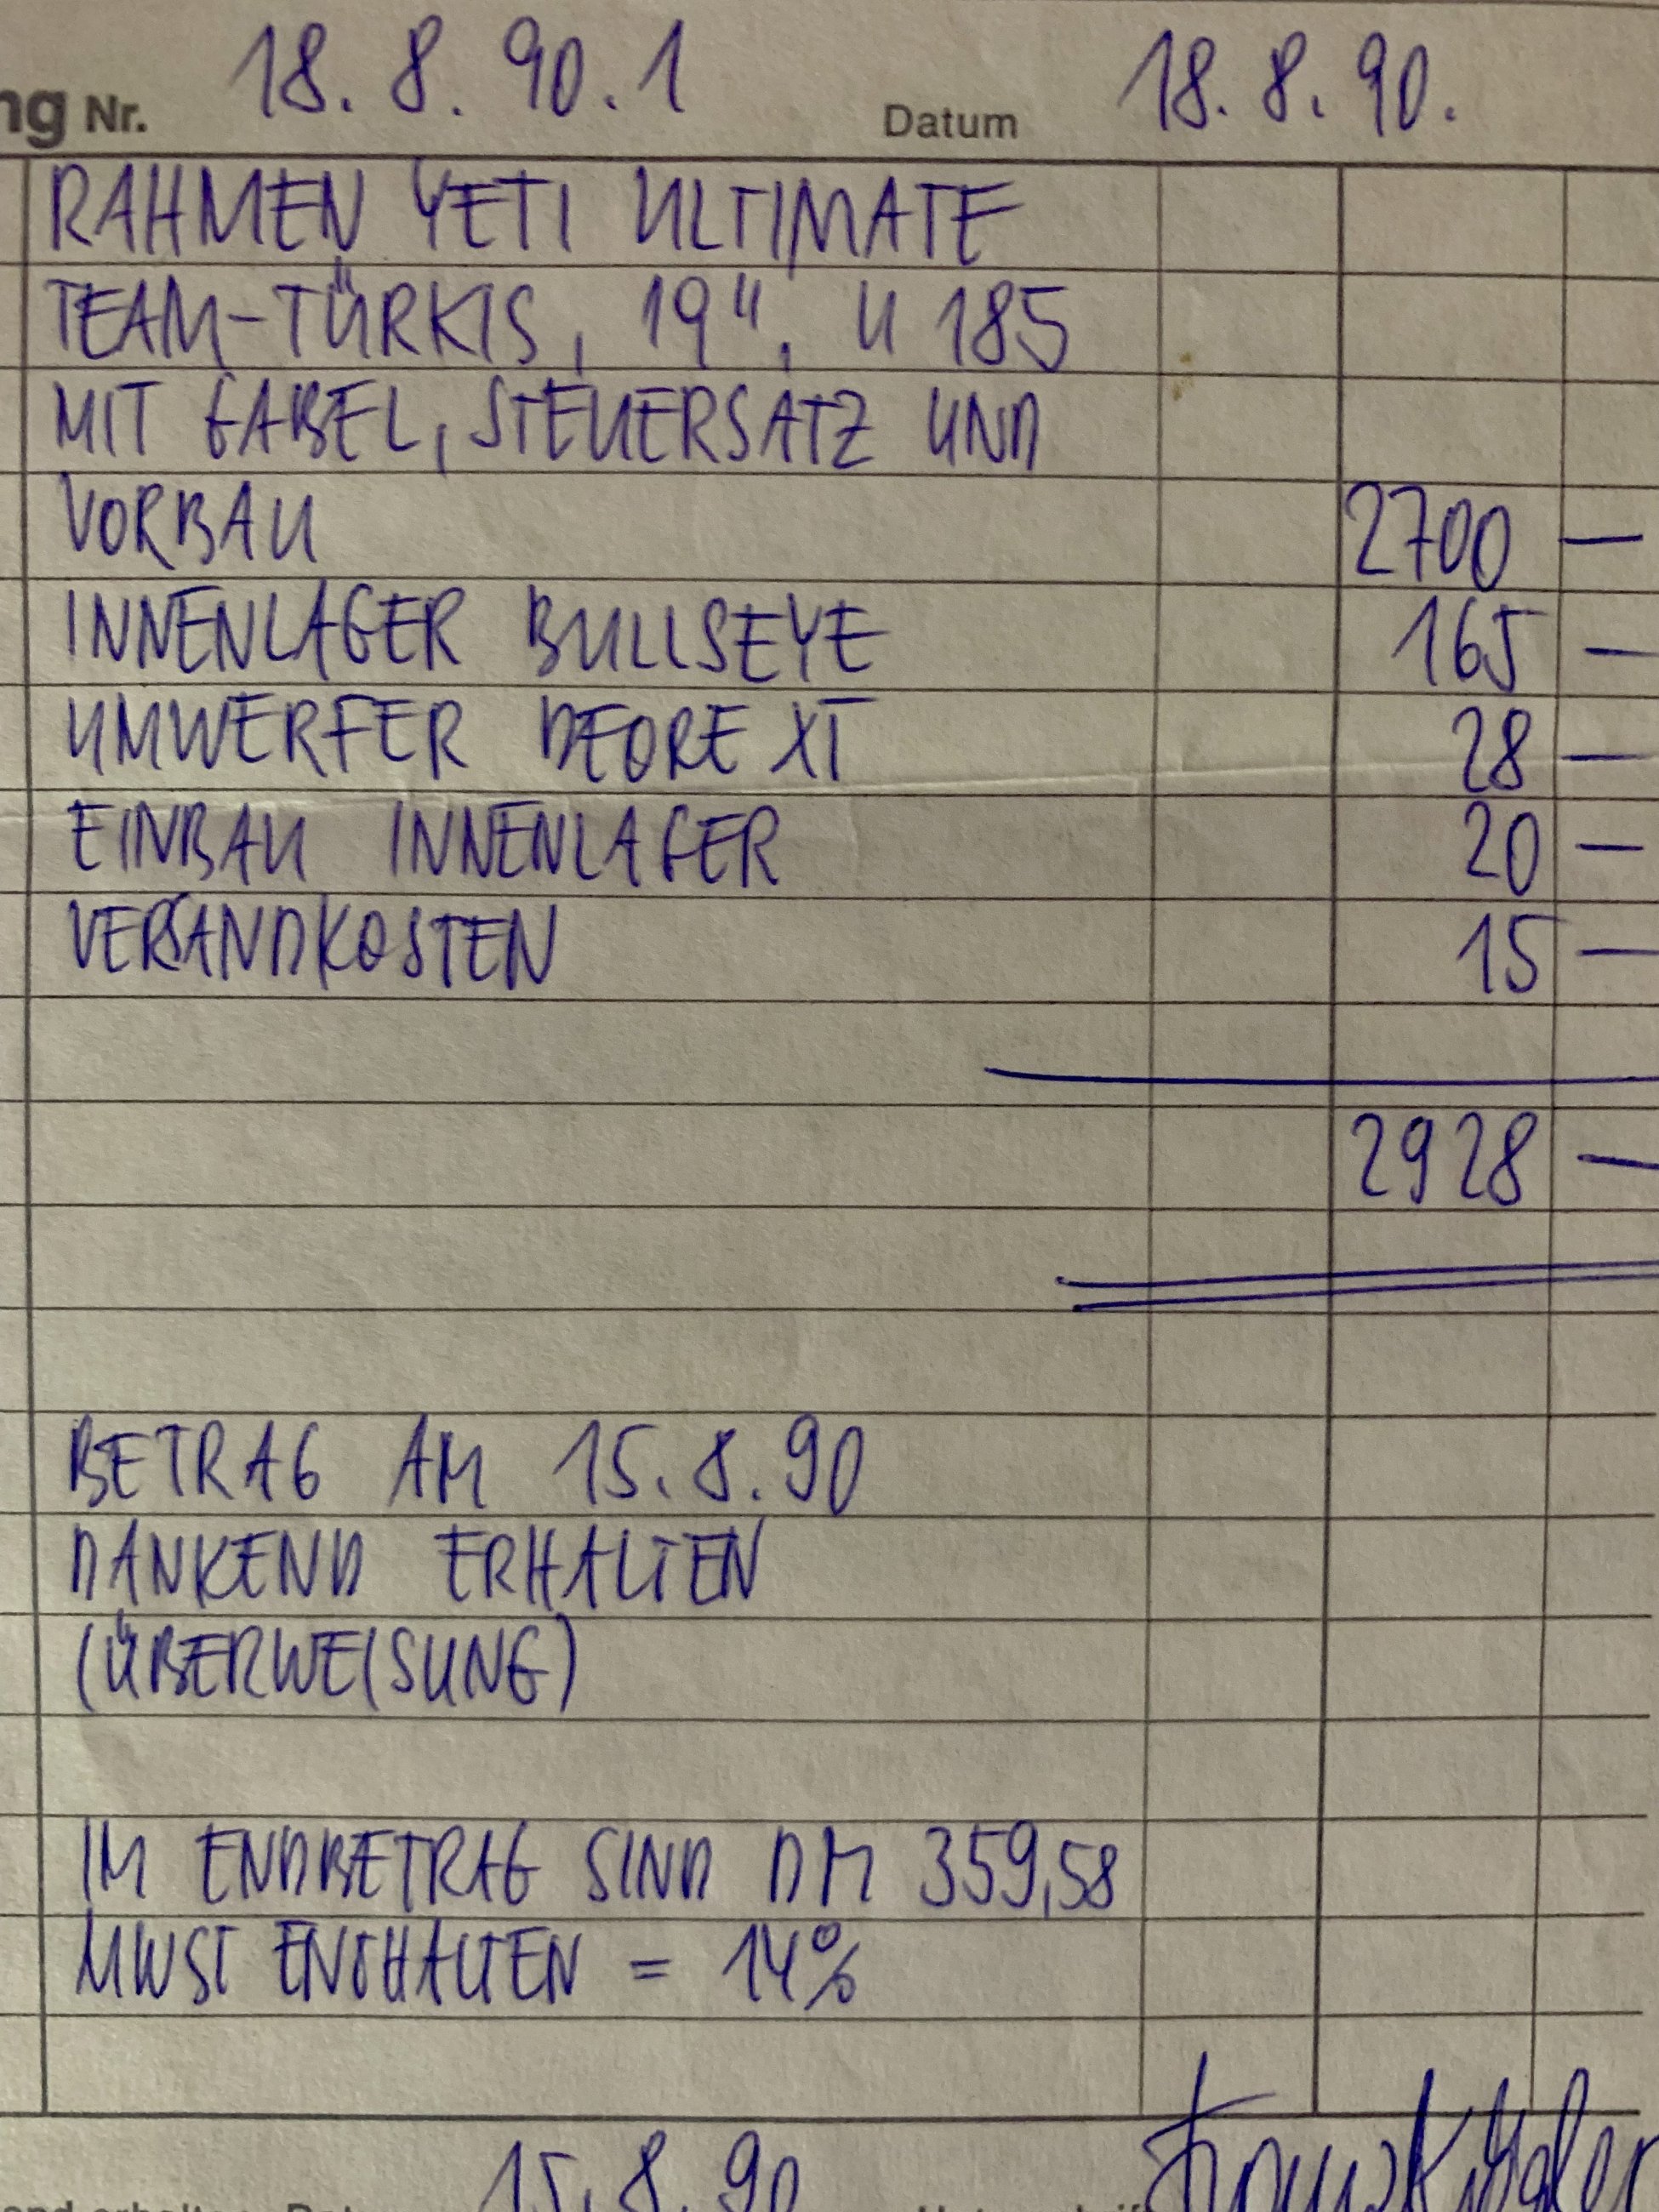 ng Nr. 18.8.90.1 Datum 18.8.90.
RAHMEN YETI ULTIMATE
TEAM-TÜRKIS, 19", U 185
MIT GABEL, STEUERSATZ UND
VORBAU 2700 —
INNENLAGER BULLSEYE 165 —
UMWERFER DEORE XT 28 —
EINBAU INNENLAGER 20 —
VERSANDKOSTEN 15 —
2928 —
BETRAG AM 15.8.90
DANKEND ERHALTEN
(ÜBERWEISUNG)
IM ENDBETRAG SIND DM 359,58
MWST ENTHALTEN = 14%
15.8.90